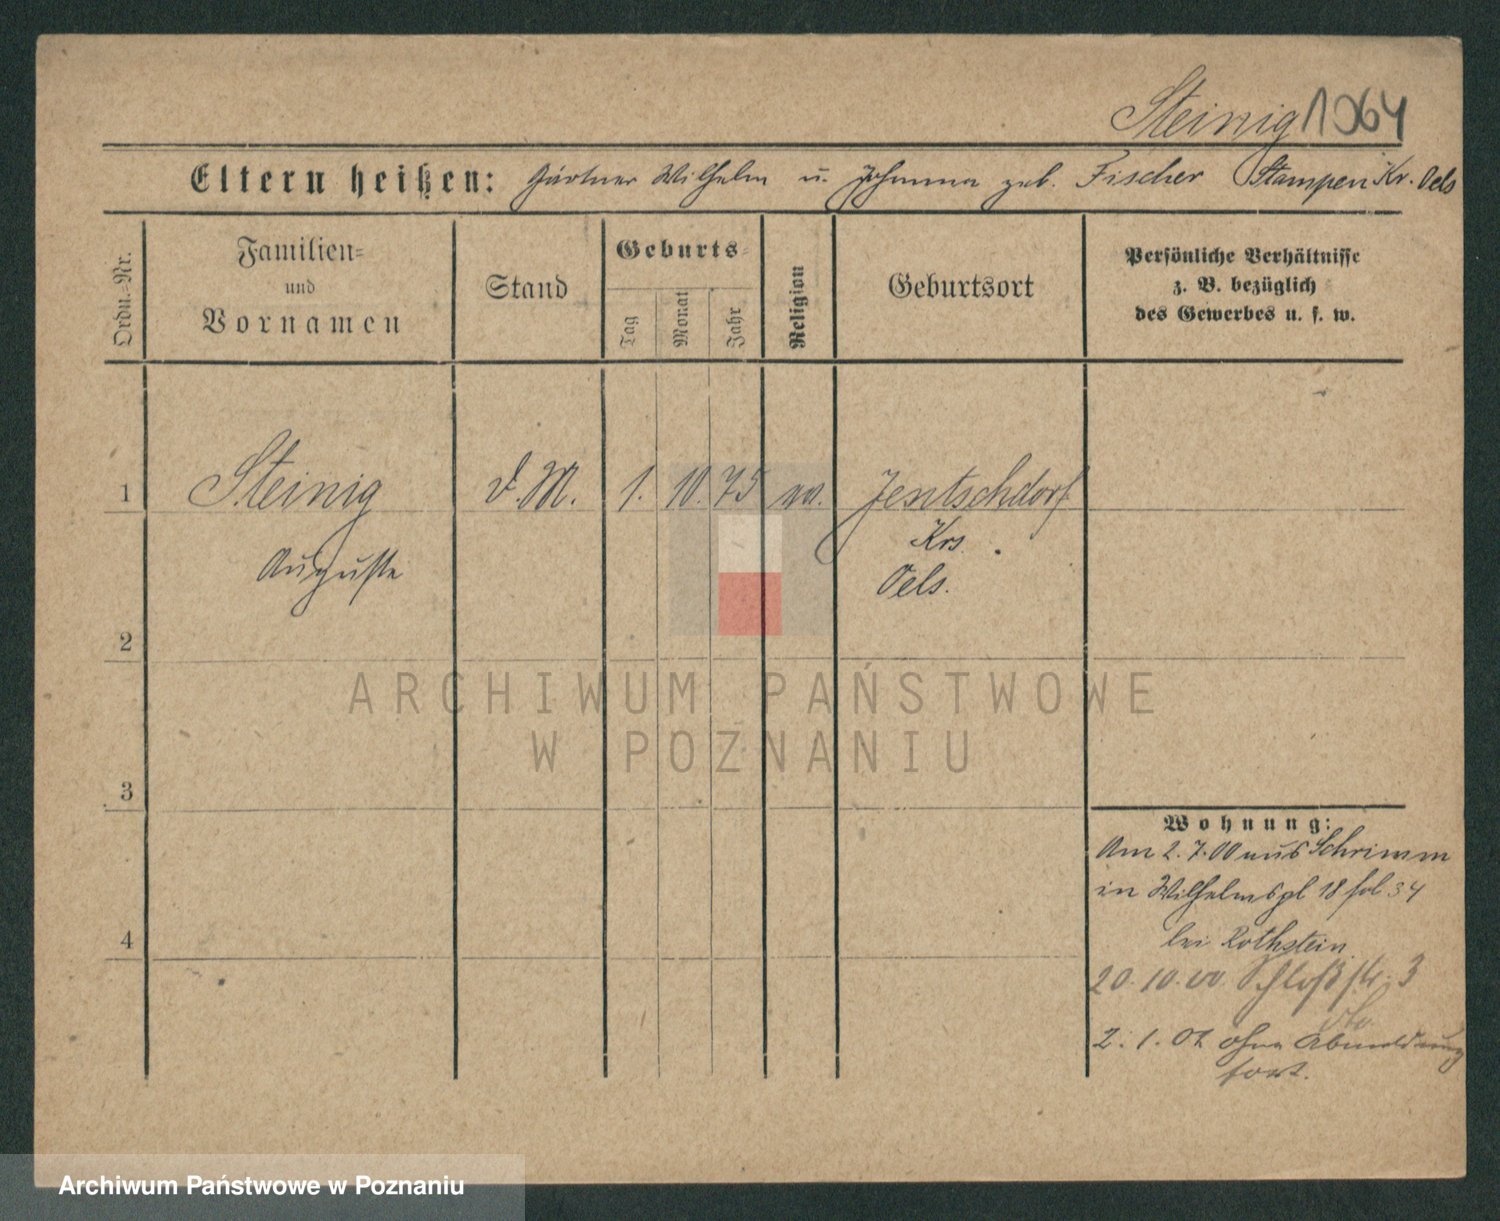 Steinig 1064
Eltern heißen: Gärtner Wilhelm u. Johanna geb. Fischer Stampen Kr. Oels
Ordn.-Nr.
Familien-
und
Vornamen
Stand
Geburts-
Tag
Monat
Jahr
Religion
Geburtsort
Persönliche Verhältnisse
z. B. bezüglich
des Gewerbes u. s. w.
1 Steinig d. M. 1. 10. 75 Jentschdorf
Auguste
Krs.
Oels.
2
3
4
ARCHIWUM PAŃSTWOWE
W POZNANIU
Wohnung:
Am 2. 7. 00 aus Schrimm
in Wilhelmspl 18 fol 34
bei Rothstein
20. 10. 00 Schloßstr. 3
2. 1. 02 ohne Abmeldung
fort.
Archiwum Państwowe w Poznaniu